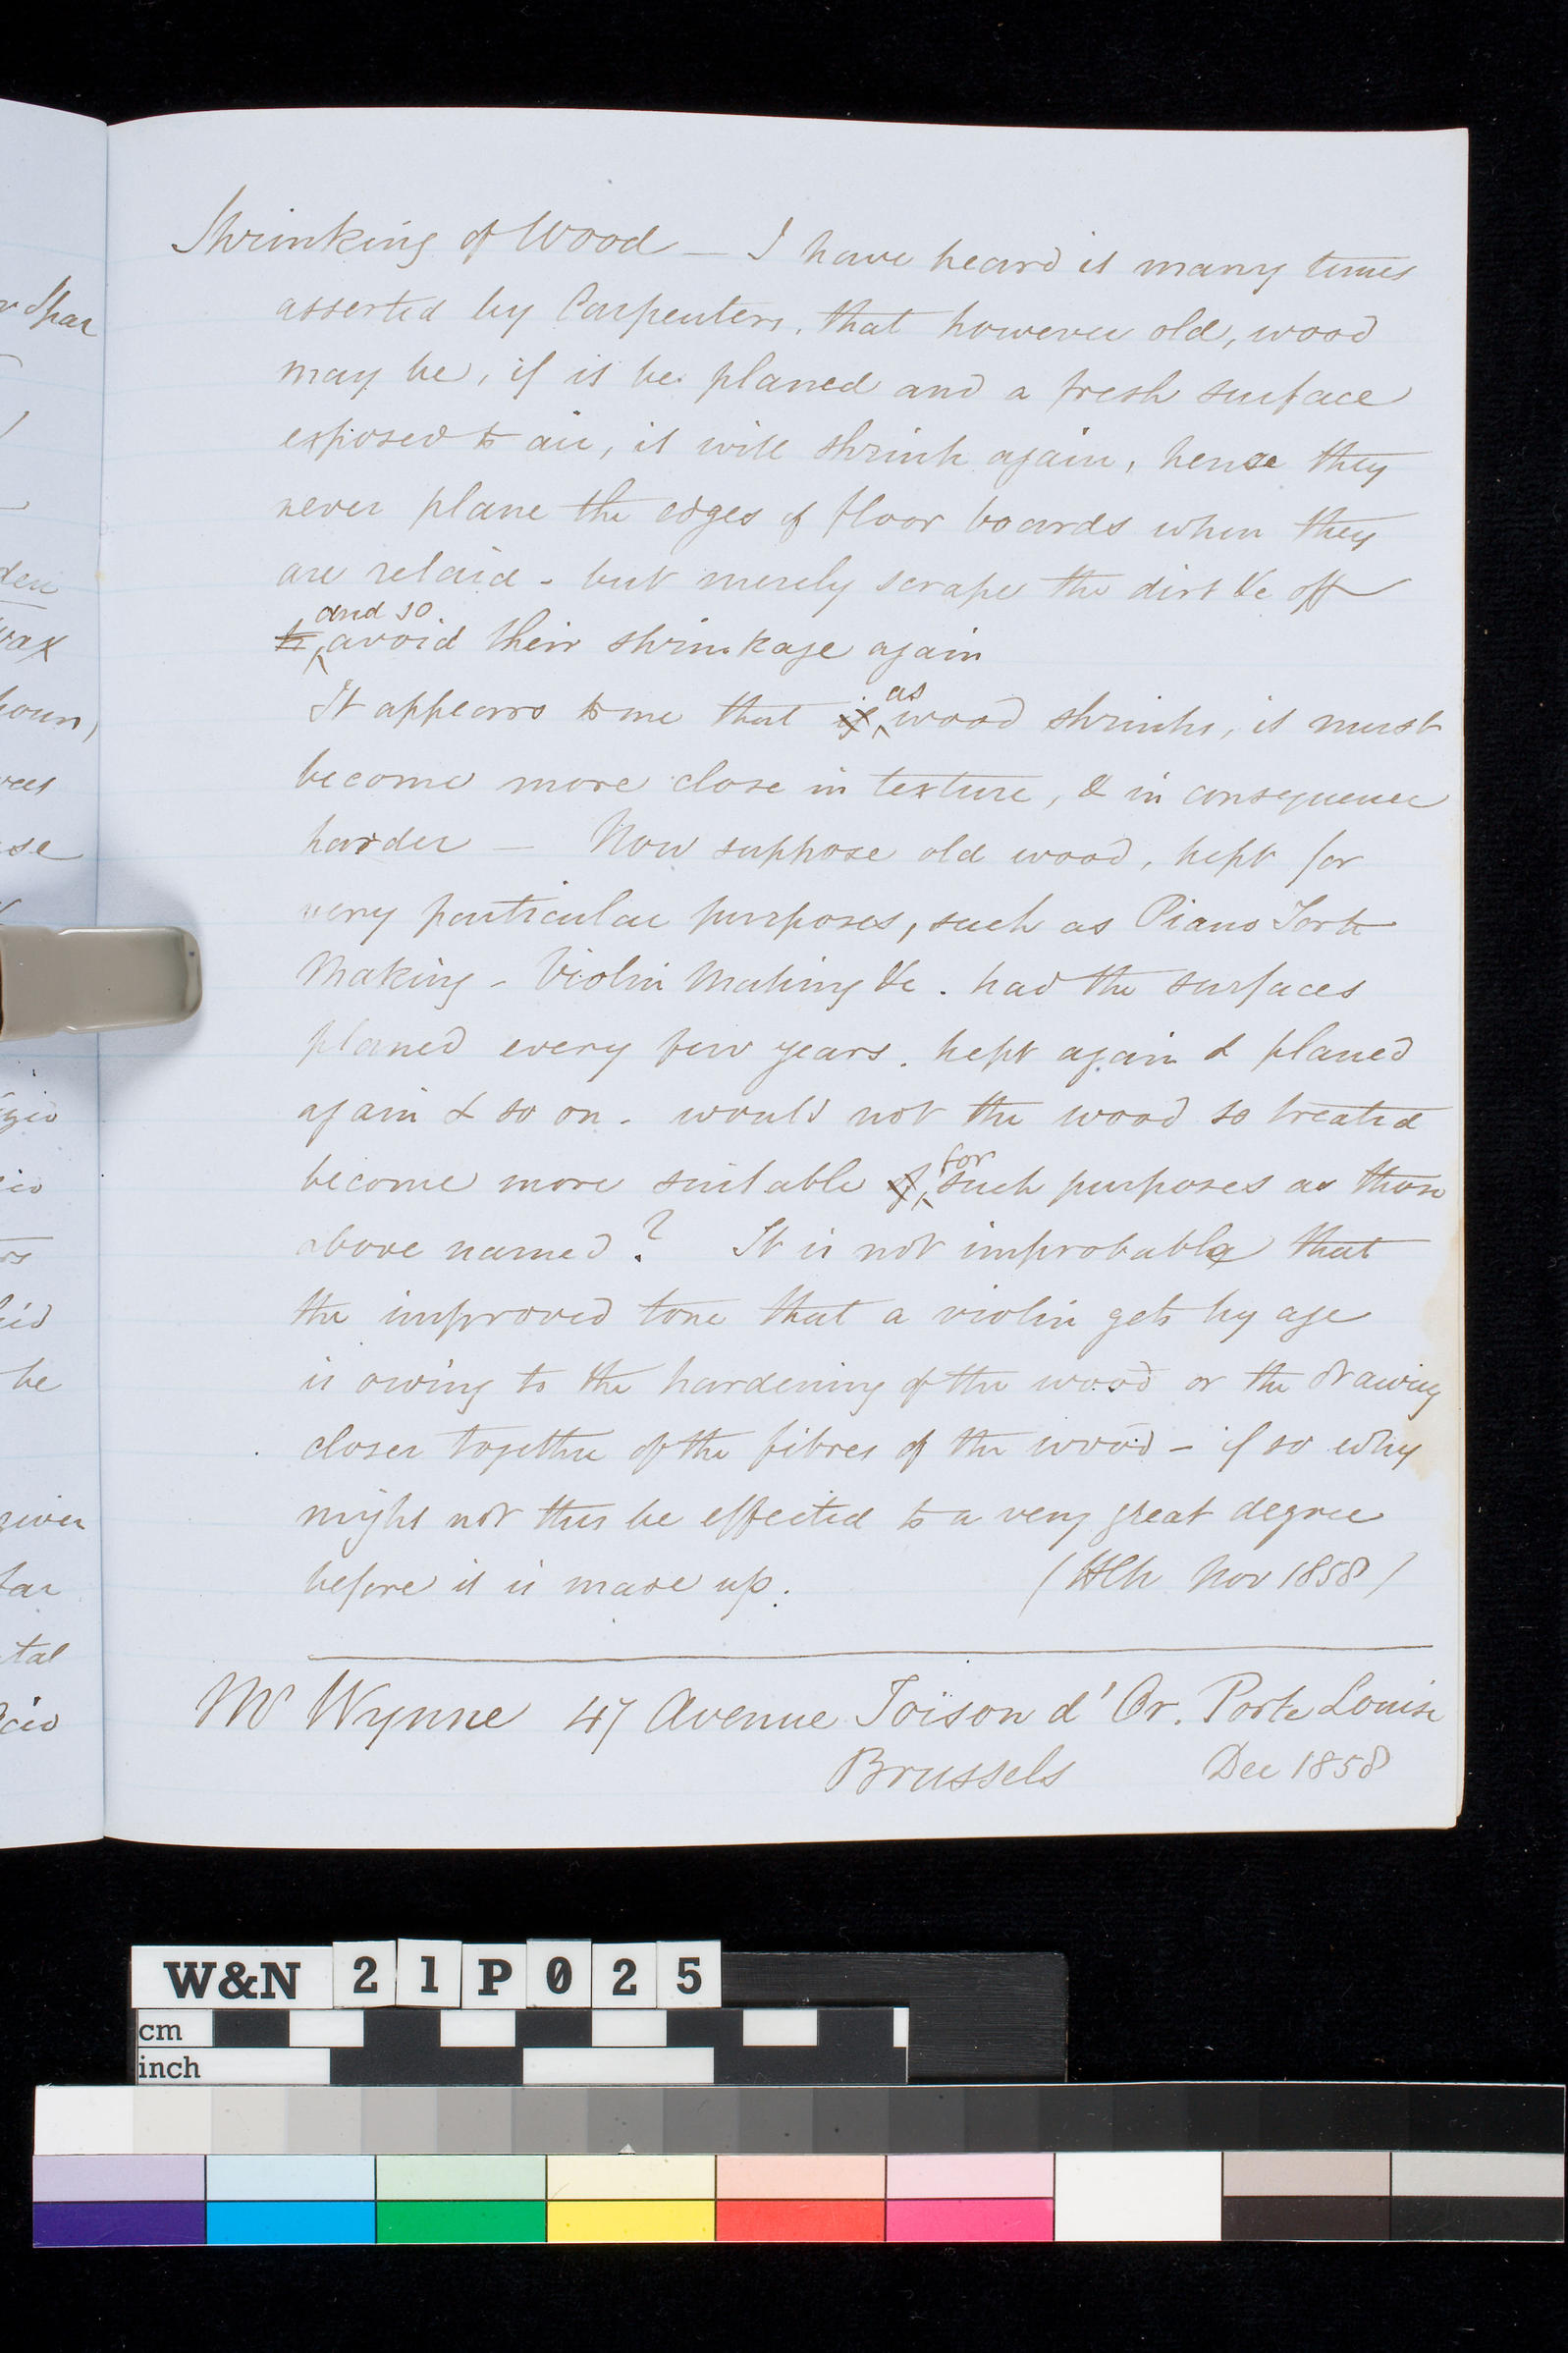 Shrinking of Wood — I have heard it many times
asserted by Carpenters, that however old, wood
may be, if it be planed and a fresh surface
exposed to air, it will shrink again, hence they
never plane the edges of floor boards when they
are relaid - but merely scrape the dirt &c off
and so
to avoid their shrinkage again
as
It appears to me that if wood shrinks, it must
become more close in texture, & in consequence
harder — Now suppose old wood, kept for
very particular purposes, such as Piano Forte
Making - Violin Making &c. had the surfaces
planed every few years. kept again & planed
again & so on - would not the wood so treated
for
become more suitable of such purposes as those
above named? It is not improbable that
the improved tone that a violin gets by age
is owing to the hardening of the wood or the drawing
closer together of the fibres of the wood - if so why
might not this be effected to a very great degree
before it is made up. ( Nov 1858)
Mr Wynne 47 Avenue Toison d'Or. Porte Louise
Brussels Dec 1858
v Spar
den
wax
se
be
tal
W&N 21P025
cm
inch